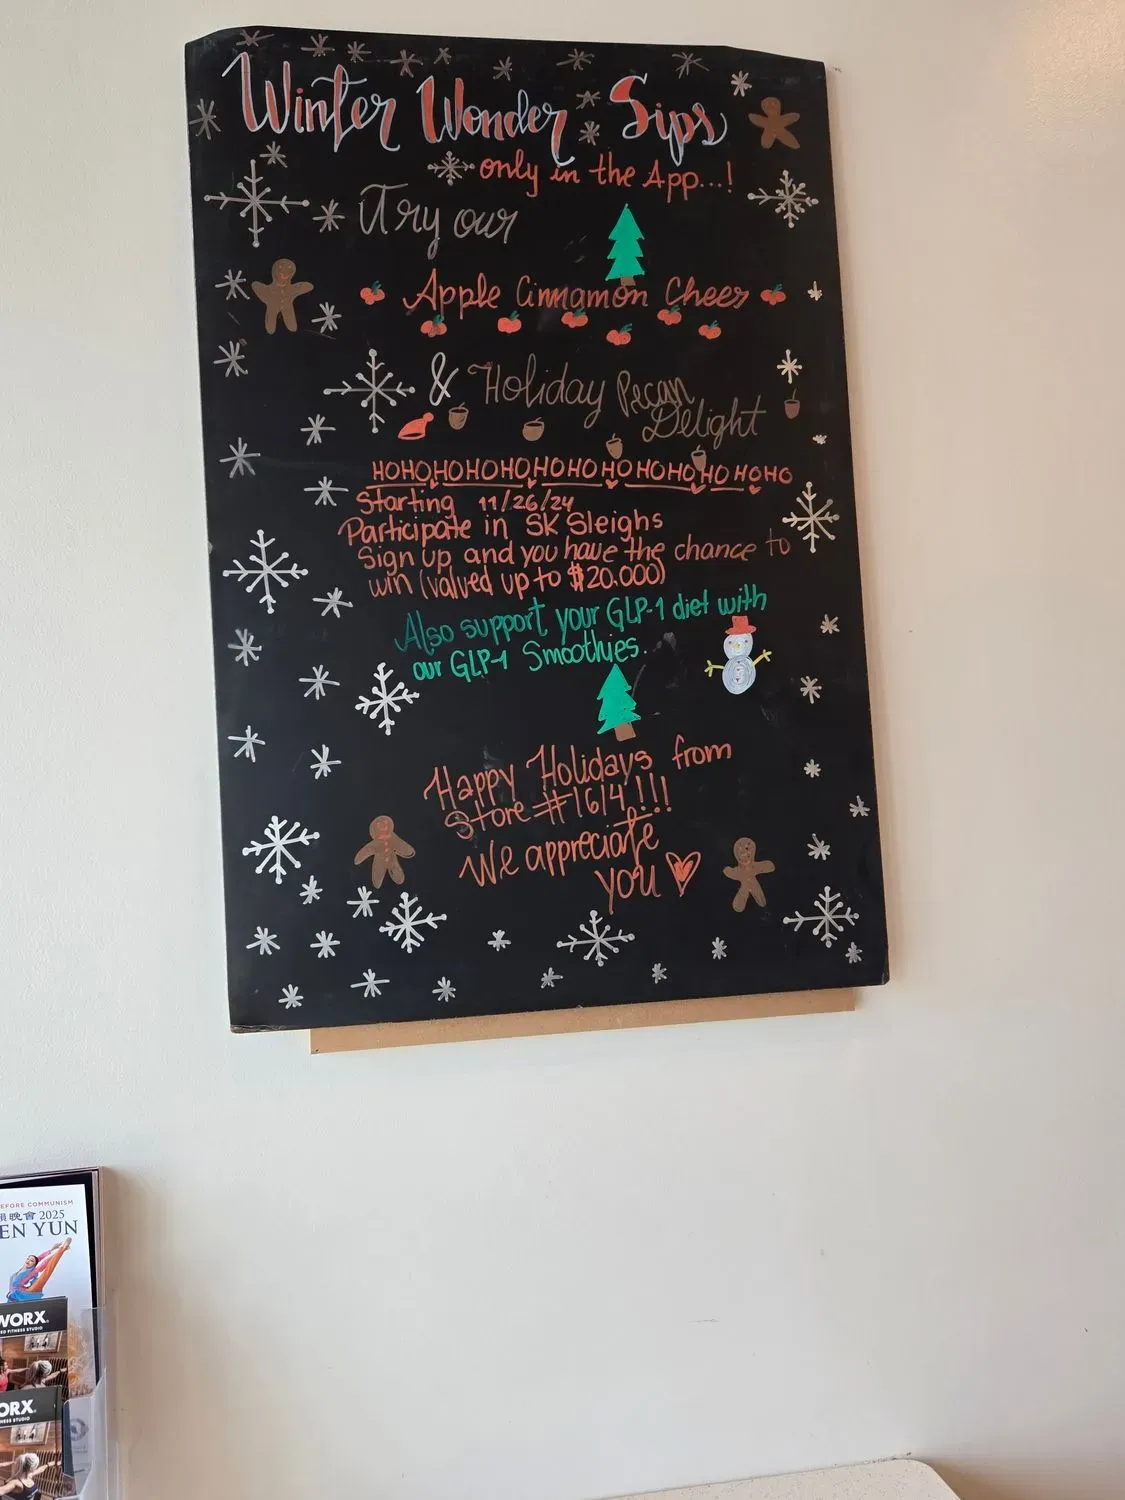 Winter Wonder Sips
only in the App...!
Try our
Apple Cinnamon Cheer
& Holiday Pecan
Delight
HOHOHOHOHOHOHOHOHOHOHOHOHO
Starting 11/26/24
Participate in SK Sleighs
Sign up and you have the chance to
win (valued up to $20,000)
Also support your GLP-1 diet with
our GLP-1 Smoothies.
Happy Holidays from
Store #1614!!!
We appreciate
you
EFORE COMMUNISM
晚會 2025
EN YUN
WORX
ED FITNESS STUDIO
ORX
NESS STUDIO